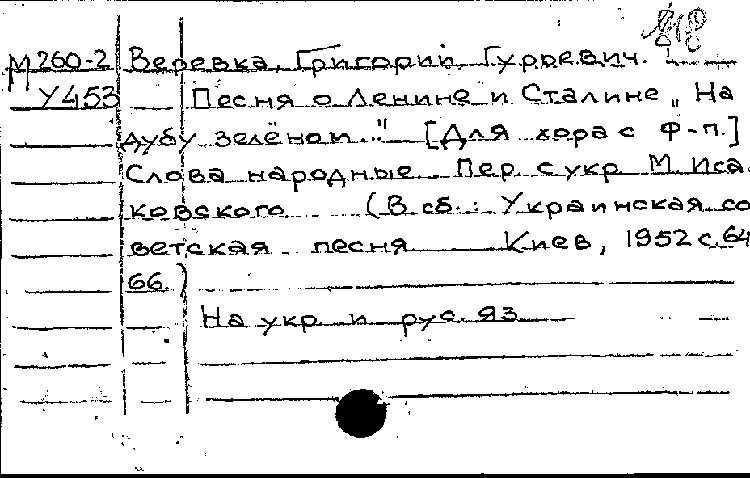 М260-2 Веревка, Григорий Гурьевич.
У453 Песня о Ленине и Сталине „На
дубу зелёном." [Для хора с ф-п.]
Слова народные. Пер. с укр. М. Иса
ковского (В сб.: Украинская со
ветская песня Киев, 1952 с. 64
66)
На укр. и рус. яз.